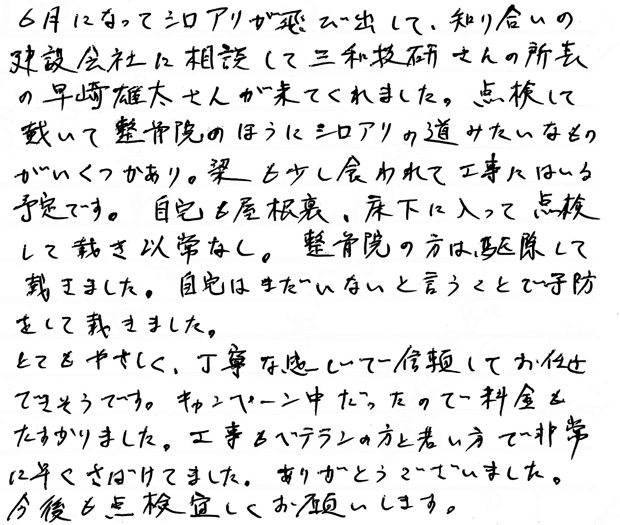 6月になってシロアリが飛び出して、知り合いの
建設会社に相談して三和技研さんの所長
の早崎雄太さんが来てくれました。点検して
戴いて整骨院のほうにシロアリの道みたいなもの
がいくつかあり。梁も少し食われて工事にはいる
予定です。自宅も屋根裏、床下に入って点検
して戴き以常なし。整骨院の方は駆除して
戴きました。自宅はまだいないと言うことで予防
をして戴きました。
とてもやさしく、丁寧な感じで信頼してお任せ
できそうです。キャンペーン中だったので料金も
たすかりました。工事もベテランの方と若い方で非常
に早くさばけてました。ありがとうございました。
今後も点検宜しくお願いします。